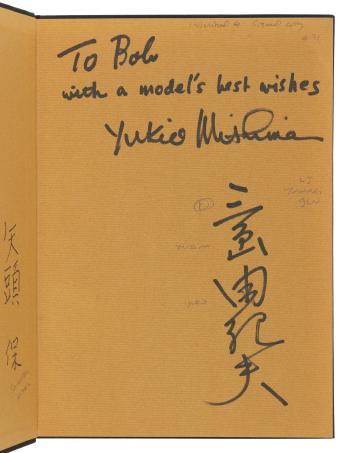 To Bob
with a model's best wishes
Yukio Mishima
三島由紀夫
矢頭 保